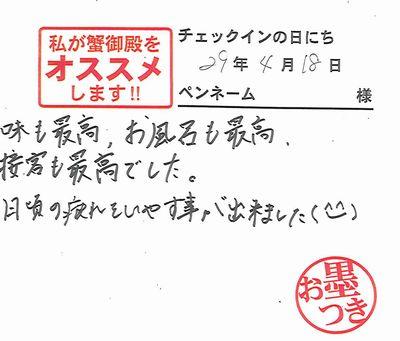 私が蟹御殿を
オススメ
します!!
チェックインの日にち
29年4月18日
ペンネーム 様
味も最高、お風呂も最高、
接客も最高でした。
日頃の疲れをいやす事が出来ました(^^)
お墨つき